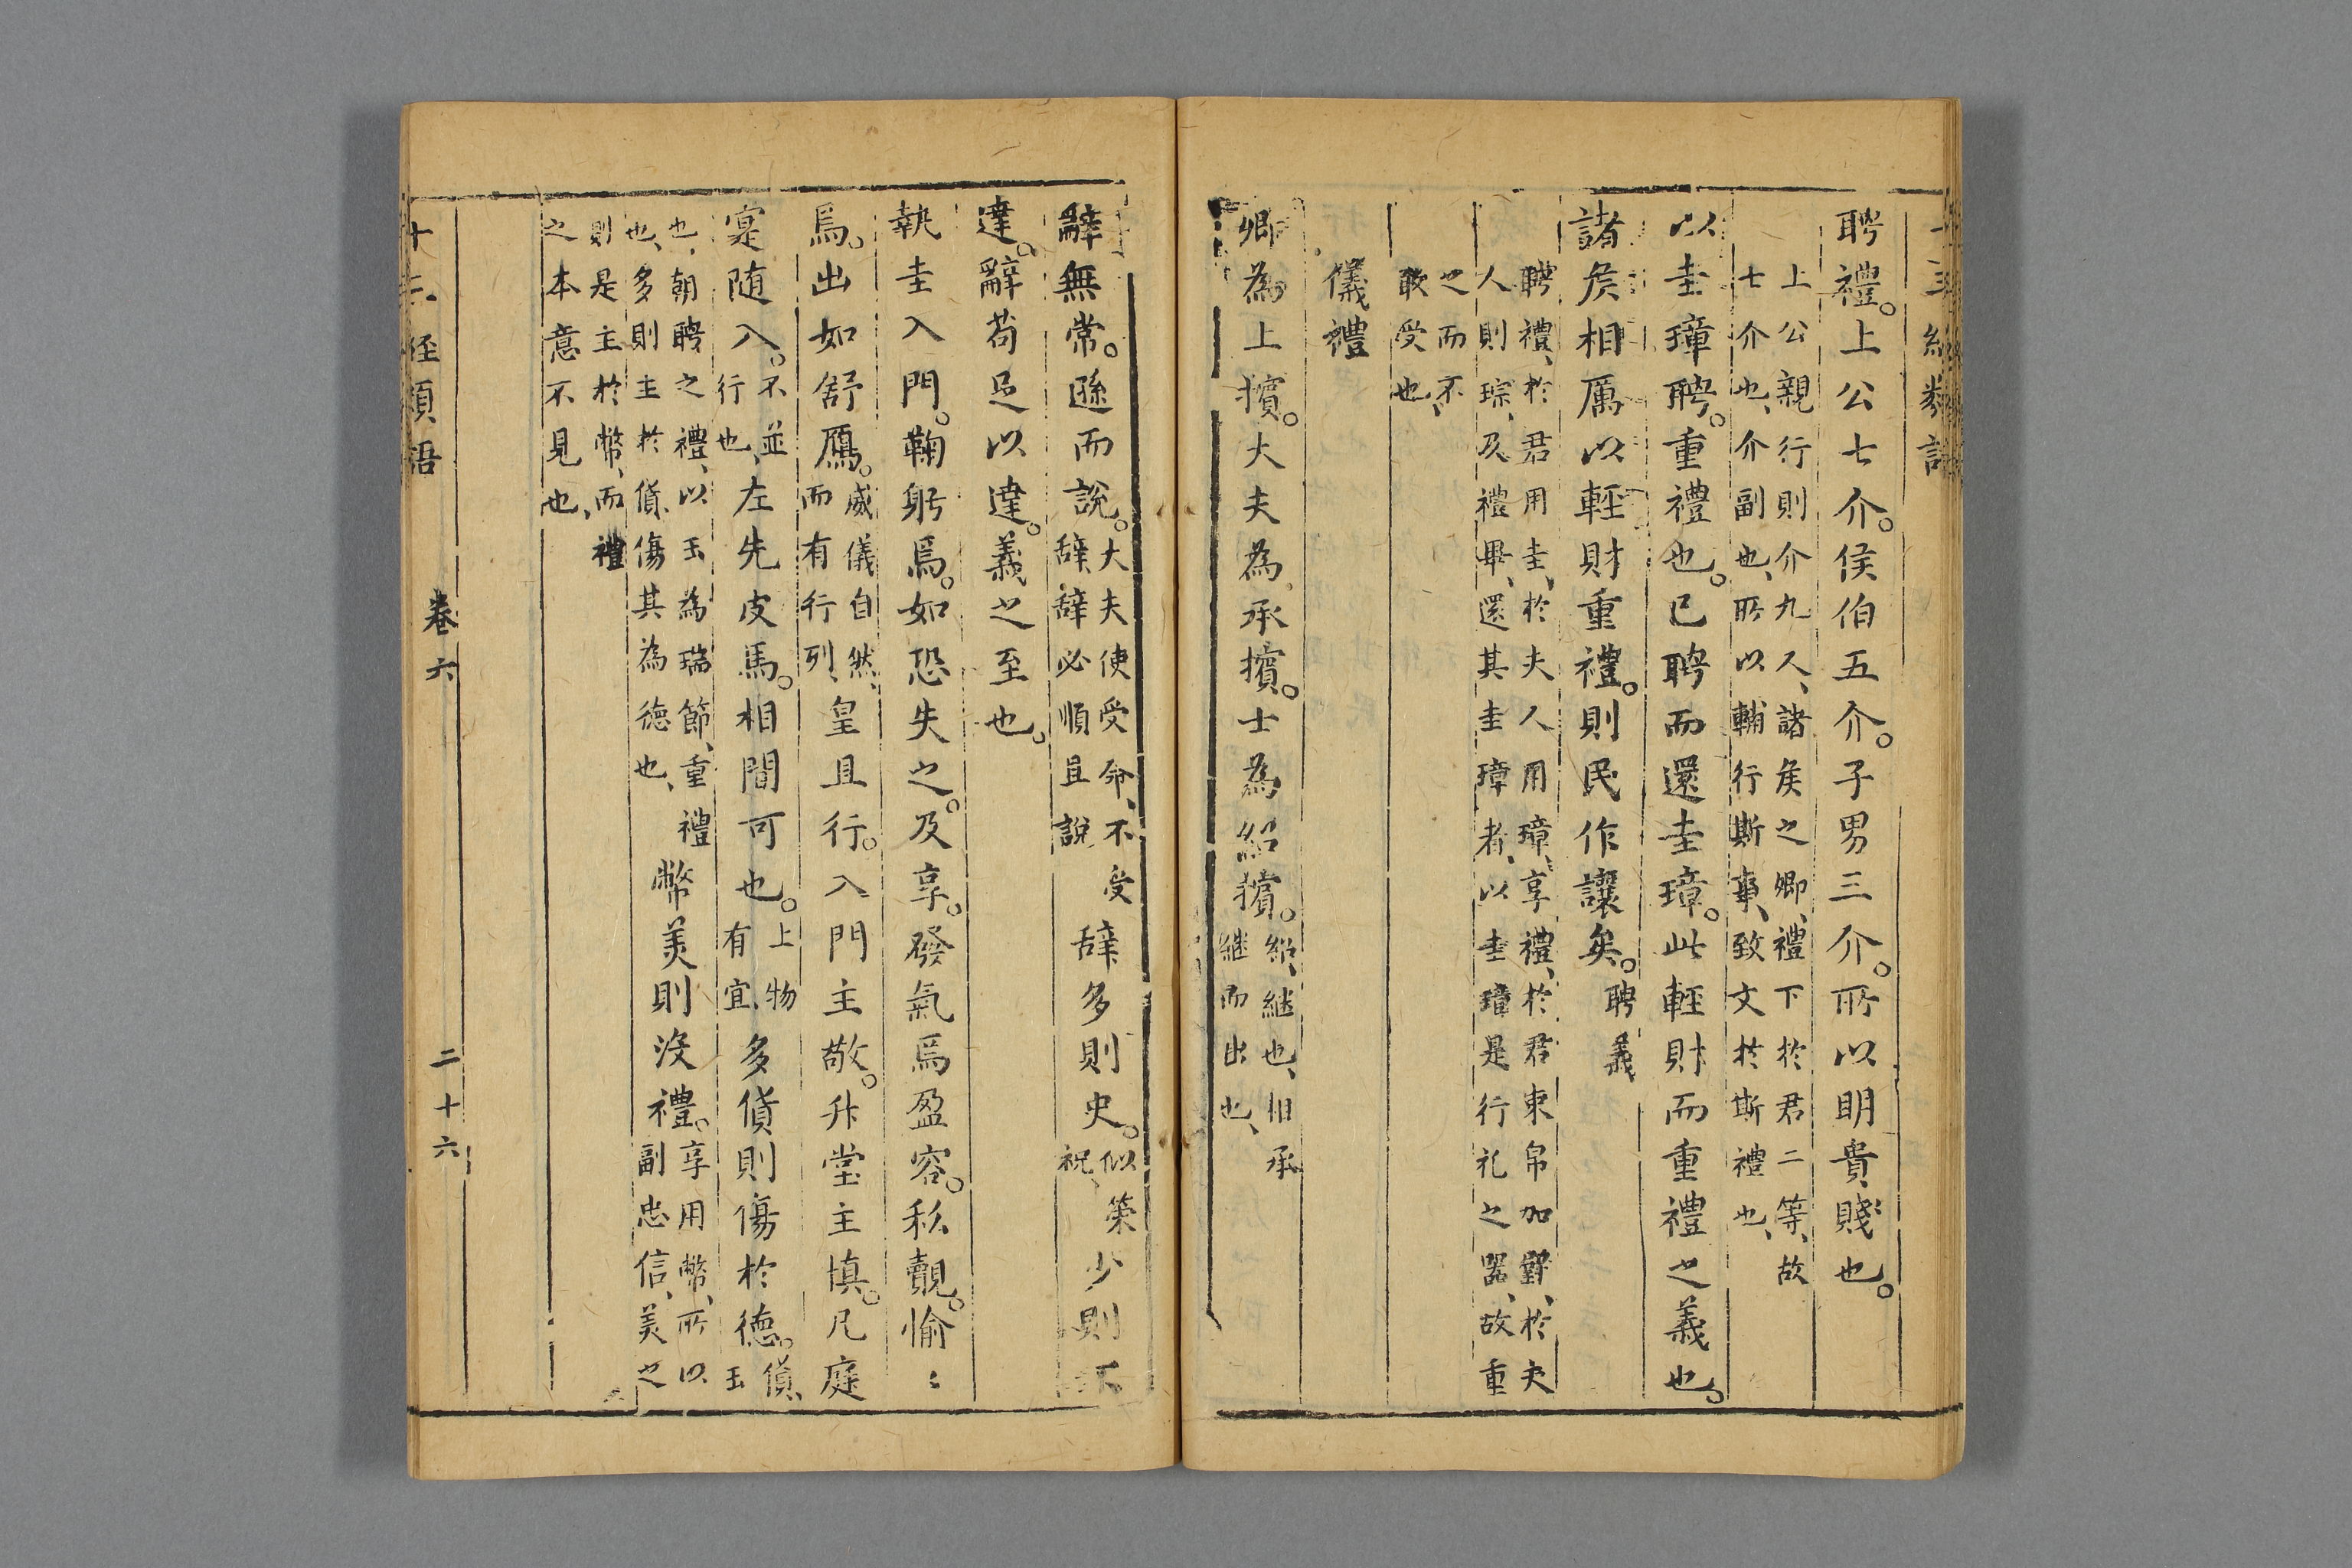 聘禮。上公七介。侯伯五介。子男三介。所以明貴賤也。
上公親行則介九人、諸矦之卿、禮下於君二等、故
七介也、介副也、所以輔行斯事、致文於斯禮也、
以圭璋聘。重禮也。已聘而還圭璋。此輕財而重禮之義也。
諸矦相厲以輕財重禮。則民作讓矣。聘義
聘禮、於君用圭、於夫人用璋、享禮、於君束帛加璧、於夫
人則琮、及禮畢、還其圭璋者、以圭璋是行礼之器、故重
之而不
敢受也、
儀禮
卿為上擯。大夫為承擯。士為紹擯。
紹、継也、相承
継而出也、
辭無常。遜而說。
大夫使受命、不受
辞、辞必順且說
辞多則史。
似策
祝、
少則不
達。辭苟足以達。義之至也。
執圭入門。鞠躬焉。如恐失之。及享。發氣焉盈容。私覿。愉〻
焉。出如舒鴈。
威儀自然、
而有行列、
皇且行。入門主敬。升堂主慎。凡庭
寔随入。
不並
行也、
左先皮馬。相間可也。
上物
有宜、
多貨則傷於德。
貨、
玉
也、朝聘之禮、以玉為瑞節、重禮
也、多則主於貨、傷其為德也、
幣美則沒禮。
享用幣、所以
副忠信、美之
則是主於幣、而禮
之本意不見也、
卷六
二十六